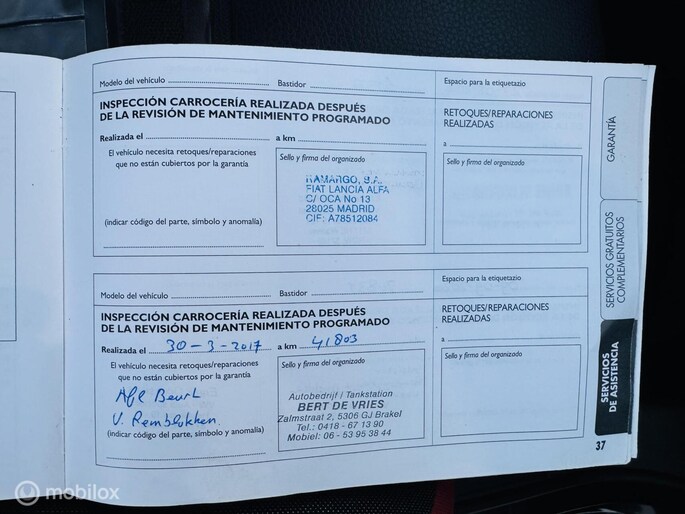 Modelo del vehículo
Bastidor
Espacio para la etiquetazio
INSPECCIÓN CARROCERÍA REALIZADA DESPUÉS
DE LA REVISIÓN DE MANTENIMIENTO PROGRAMADO
RETOQUES/REPARACIONES
REALIZADAS
Realizada el
a km
a
El vehículo necesita retoques/reparaciones
que no están cubiertos por la garantía
Sello y firma del organizado
Sello y firma del organizado
RAMARGO, S.A.
FIAT LANCIA ALFA
C/ OCA No 13
28025 MADRID
CIF: A78512084
(indicar código del parte, símbolo y anomalía)
Modelo del vehículo
Bastidor
Espacio para la etiquetazio
INSPECCIÓN CARROCERÍA REALIZADA DESPUÉS
DE LA REVISIÓN DE MANTENIMIENTO PROGRAMADO
RETOQUES/REPARACIONES
REALIZADAS
Realizada el 30-3-2017
a km 41803
a
El vehículo necesita retoques/reparaciones
que no están cubiertos por la garantía
Sello y firma del organizado
Sello y firma del organizado
Afl Beurt
V. Remblokken
(indicar código del parte, símbolo y anomalía)
Autobedrijf / Tankstation
BERT DE VRIES
Zalmstraat 2, 5306 GJ Brakel
Tel.: 0418 - 67 13 90
Mobiel: 06 - 53 95 38 44
GARANTÍA
SERVICIOS GRATUITOS
COMPLEMENTARIOS
SERVICIOS
DE ASISTENCIA
37
mobilox